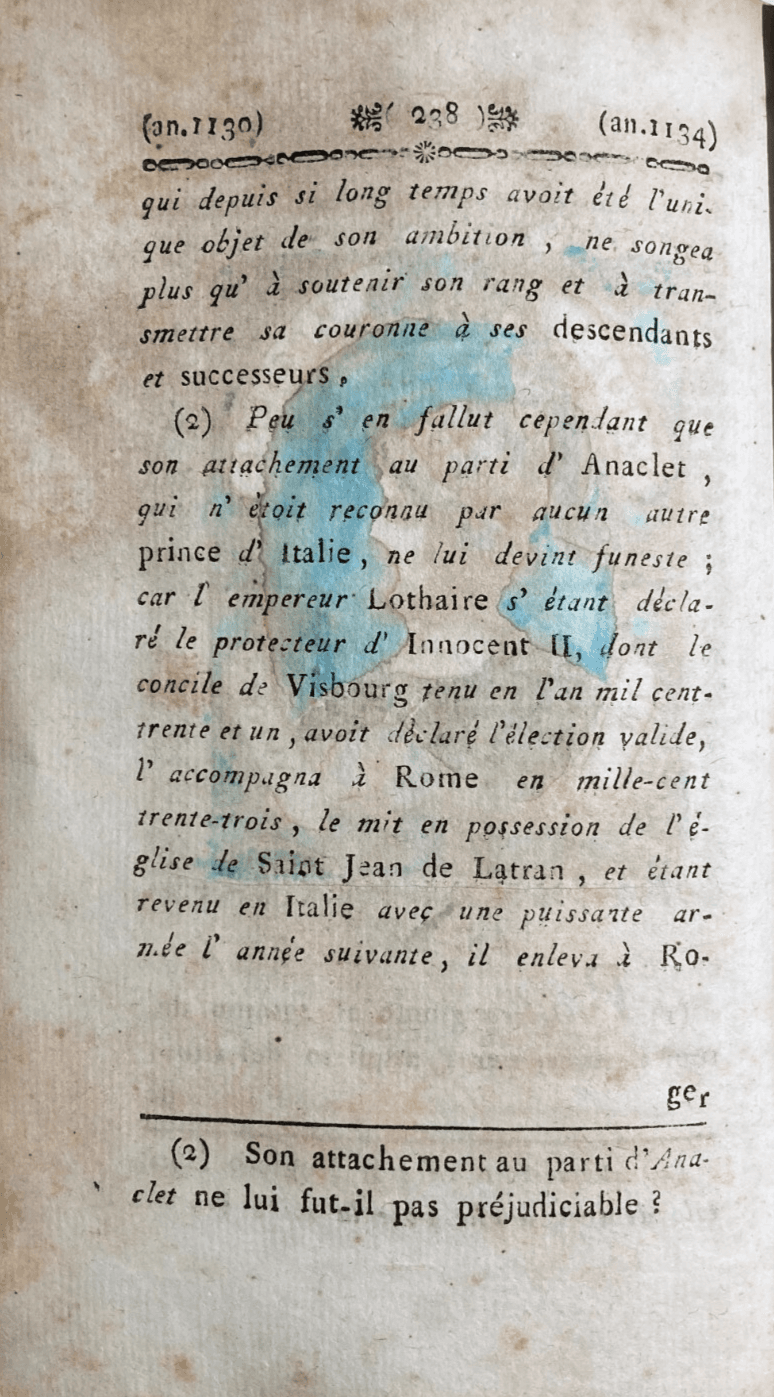 (an.1130) ( 238 ) (an.1134)
qui depuis si long temps avoit été l'uni-
que objet de son ambition , ne songea
plus qu' à soutenir son rang et à tran-
smettre sa couronne à ses descendants
et successeurs .
(2) Peu s' en fallut cependant que
son attachement au parti d' Anaclet ,
qui n' ètoit reconnu par aucun autre
prince d' Italie , ne lui devint funeste ;
car l' empereur Lothaire s' étant décla-
ré le protecteur d' Innocent II, dont le
concile de Visbourg tenu en l'an mil cent-
trente et un , avoit déclaré l'élection valide,
l' accompagna à Rome en mille-cent
trente-trois , le mit en possession de l' é-
glise de Saint Jean de Latran , et étant
revenu en Italie avec une puissante ar-
mée l' année suivante , il enleva à Ro-
ger
(2) Son attachement au parti d'Ana-
clet ne lui fut-il pas préjudiciable ?